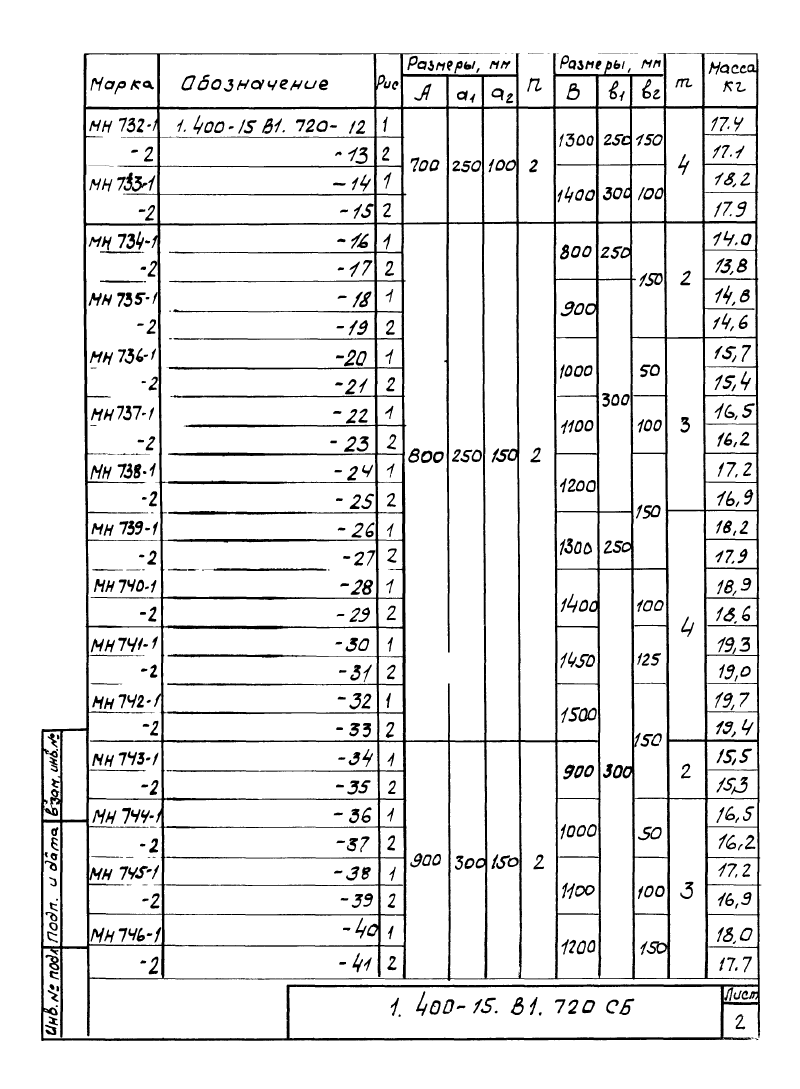 Марка Обозначение Рис Размеры, мм n Размеры, мм m Масса кг
A a1 a2 B в1 в2
МН 732-1 1.400-15 В1. 720- 12 1 700 250 100 2 1300 250 150 4 17.4
-2 -13 2 17.1
МН 733-1 -14 1 1400 300 100 18,2
-2 -15 2 17.9
МН 734-1 -16 1 800 250 150 2 800 250 150 2 14.0
-2 -17 2 13,8
МН 735-1 -18 1 900 300 14,8
-2 -19 2 14,6
МН 736-1 -20 1 1000 50 3 15,7
-2 -21 2 15,4
МН 737-1 -22 1 1100 100 16,5
-2 -23 2 16,2
МН 738-1 -24 1 1200 150 17,2
-2 -25 2 16,9
МН 739-1 -26 1 1300 250 4 18,2
-2 -27 2 17.9
МН 740-1 -28 1 1400 300 100 18,9
-2 -29 2 18.6
МН 741-1 -30 1 1450 125 19,3
-2 -31 2 19,0
МН 742-1 -32 1 1500 150 19,7
-2 -33 2 19,4
МН 743-1 -34 1 900 300 150 2 900 2 15,5
-2 -35 2 15,3
МН 744-1 -36 1 1000 50 3 16,5
-2 -37 2 16,2
МН 745-1 -38 1 1100 100 17,2
-2 -39 2 16,9
МН 746-1 -40 1 1200 150 18,0
-2 -41 2 17.7
Взам. инв. №
Подп. и дата
Инв. № подл
1. 400-15. В1. 720 СБ
Лист
2